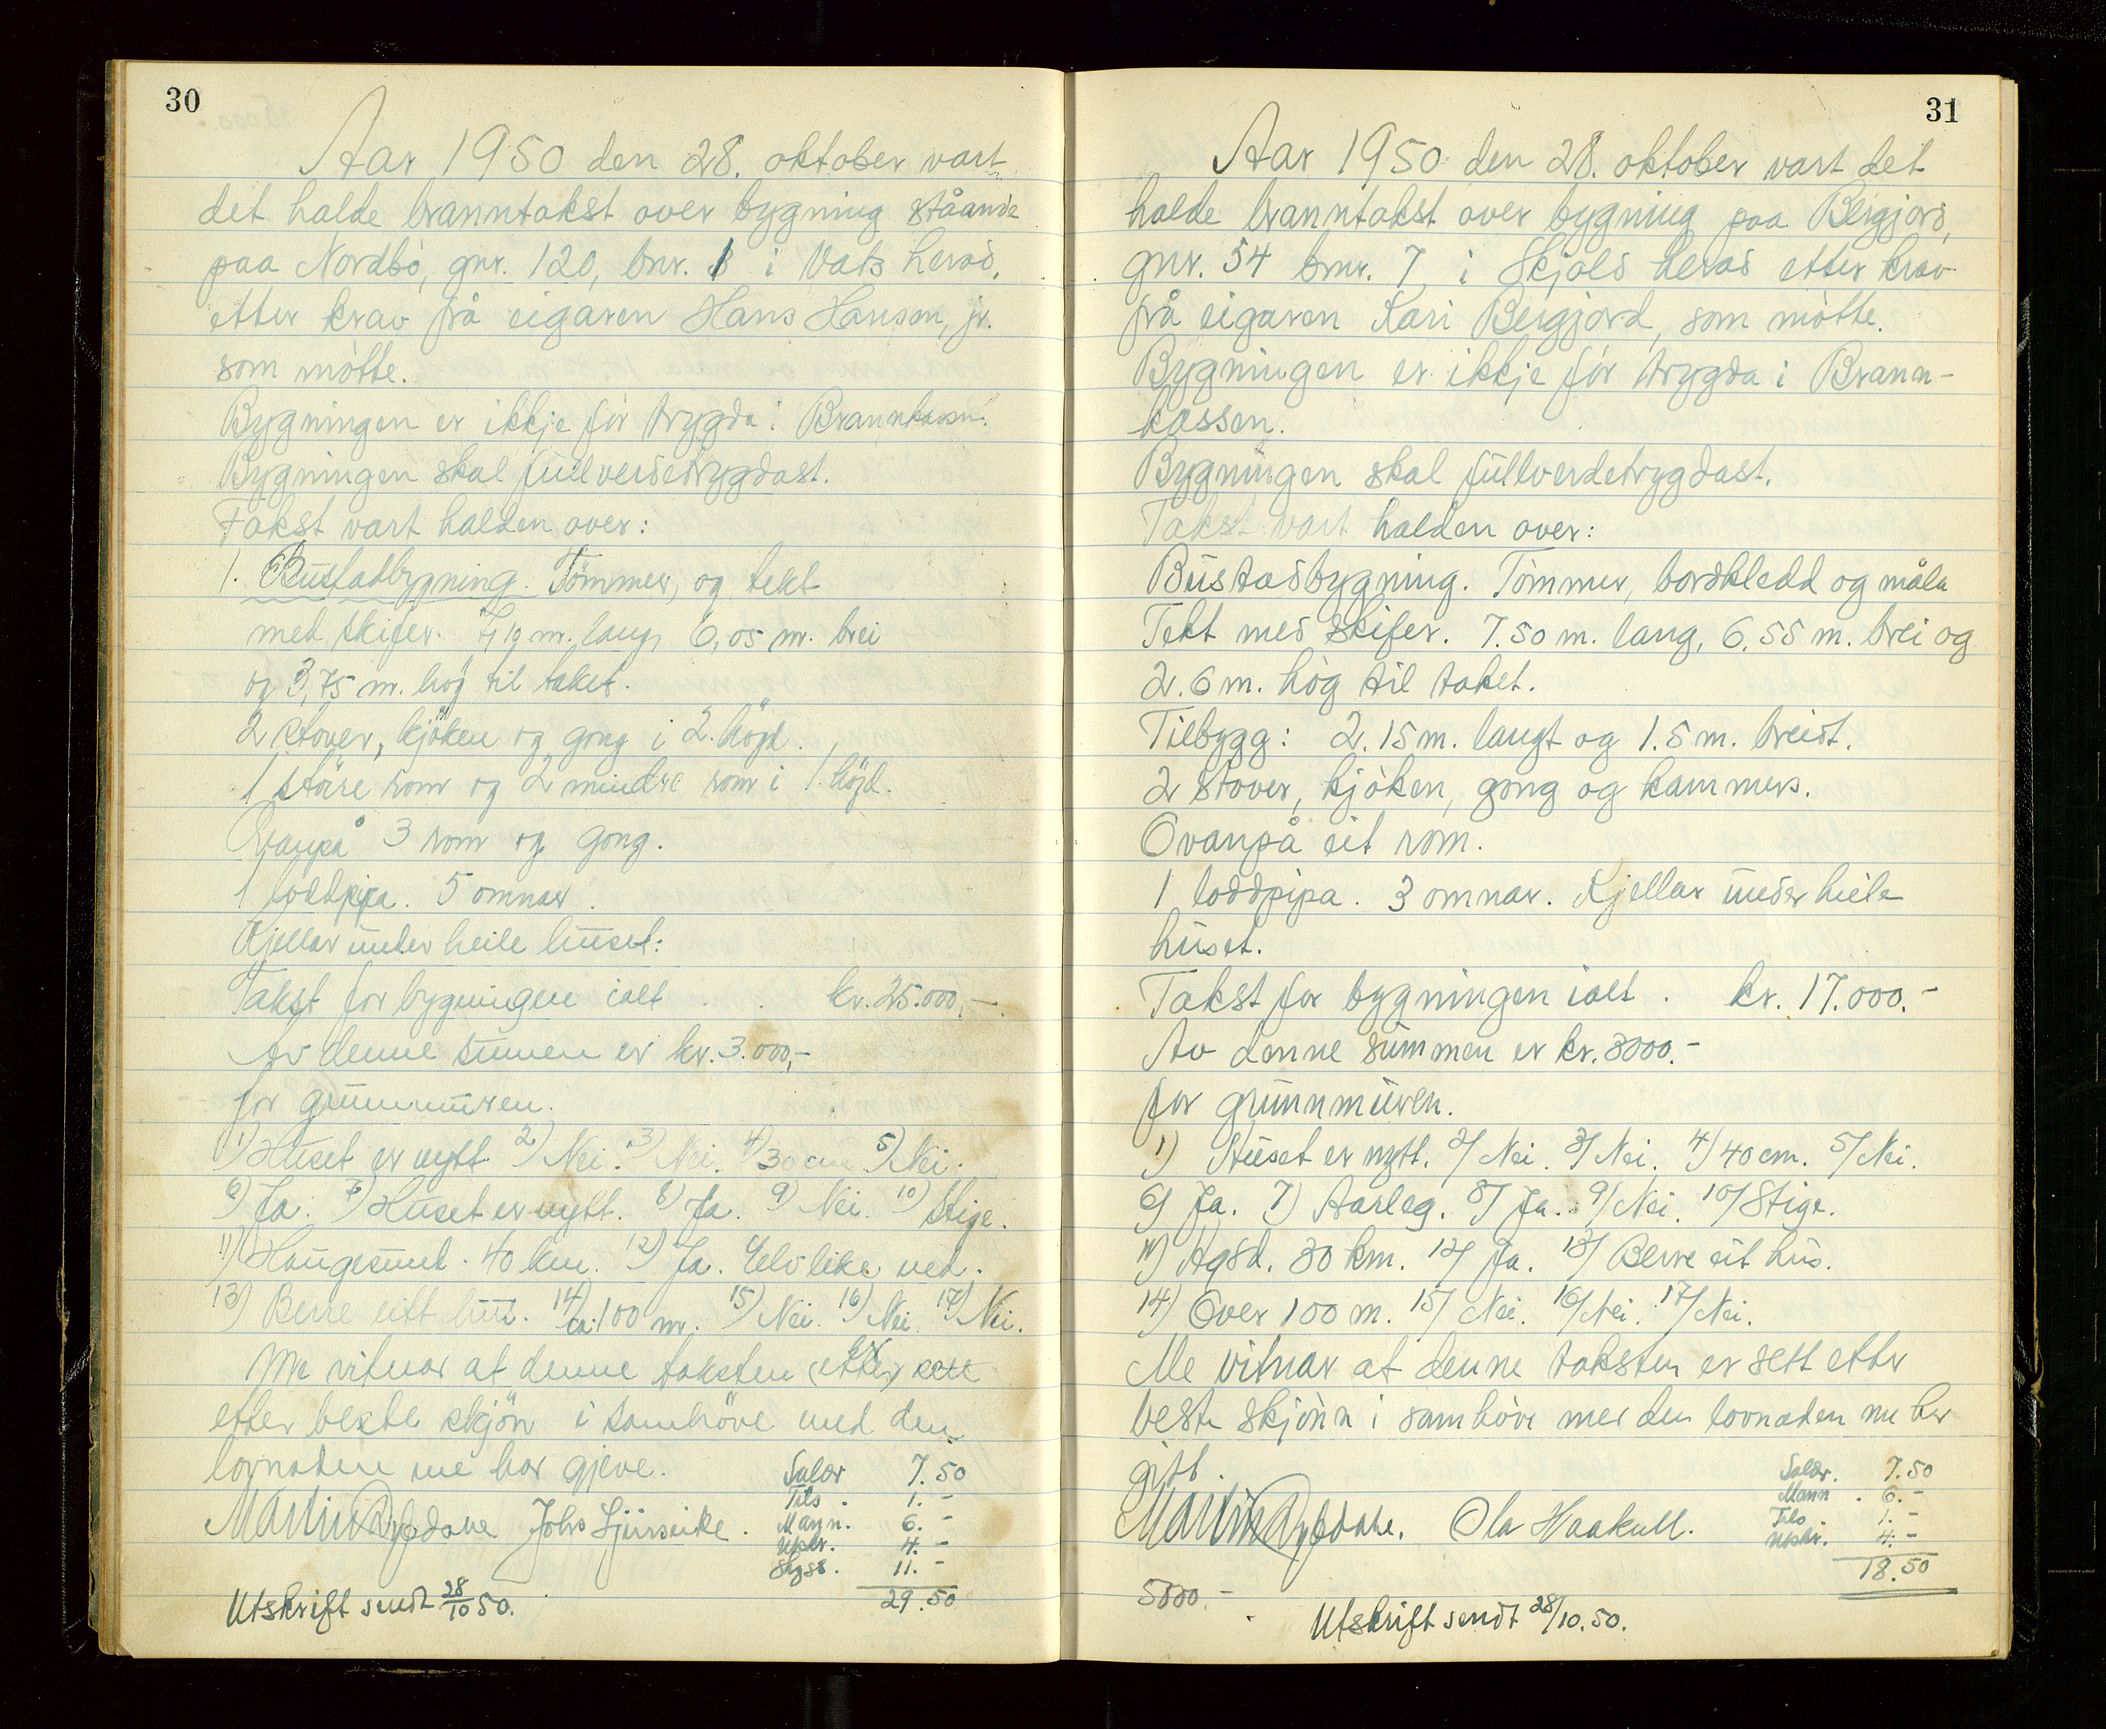 30
Aar 1950 den 28. oktober vart
det halde branntakst over bygning ståande
paa Nordbö, gnr. 120, bnr. 1 i Vats herad,
etter krav frå eigaren Hans Hansen, jr.
som møtte.
Bygningen er ikkje før trygda i Brannkassen.
Bygningen skal fullverdetrygdast.
Takst vart halden over:
1. Bustadbygning. Tömmer, og tekt
med skifer. m. lang, 6,05 m. brei
og 3,75 m. hög til taket.
2 stover, kjöken og gong i 2. högd.
1 större rom og 2 mindre rom i 1. högd.
Ovanpå 3 rom og gong.
1 loddpipa. 5 omnar.
Kjellar under heile huset.
Takst for bygningen ialt . . kr. 25.000,-
Av denne sumen er kr. 3.000,-
for grunnmuren.
1) Huset er nytt. 2) Nei. 3) Nei. 4) 30 cm 5) Nei.
6) Ja. 7) Huset er nytt. 8) Ja. 9) Nei. 10) Stige.
11) Haugesund. 40 km. 12) Ja. ved.
13) Berre eitt hus. 14) ca. 100 m. 15) Nei. 16) Nei. 17) Nei.
Me vitnar at denne taksten (etter) er sett
etter beste skjön i samhöve med den
lovnaden me har gjeve.
Salær 7.50
Tils . 1.-
Martin Dybdahl Johs Ljunseike . Mann. 6.-
Utskr. 4.-
Skyss. 11.-
29.50
Utskrift sendt 28/10 50.
31
Aar 1950 den 28. oktober vart det
halde branntakst over bygning paa Bergjord,
gnr. 54 bnr. 7 i Skjold herad etter krav
frå eigaren Kari Bergjord, som møtte.
Bygningen er ikkje før trygda i Brann-
kassen.
Bygningen skal fullverdetrygdast.
Takst vart halden over:
Bustadbygning. Tømmer, bordkledd og måla
Tekt med skifer. 7.50 m. lang, 6.55 m. brei og
2.6 m. høg til taket.
Tilbygg: 2.15 m. langt og 1.5 m. breidt.
2 stover, kjøken, gong og kammers.
Ovanpå eit rom.
1 loddpipa. 3 omnar. Kjellar under heile
huset.
Takst for bygningen ialt . kr. 17.000.-
Av denne summen er kr. 3000.-
for grunnmuren.
1) Huset er nytt. 2/ Nei. 3/ Nei. 4/ 40 cm. 5/ Nei.
6) Ja. 7) Aarleg. 8/ Ja. 9/ Nei. 10/ Stige.
11) Hgsd. 30 km. 12/ Ja. 13/ Berre eit hus.
14) Over 100 m. 15/ Nei. 16/ Nei. 17/ Nei.
Me vitnar at denne taksten er sett etter
beste skjønn i samhøve med den lovnaden me her
gitt.
Salær. 7.50
Mann . 6.-
Martin Dybdahl. Ola Haakull. Tils 1.-
Utskr. 4.-
18.50
5000.-
Utskrift sendt 28/10.50.